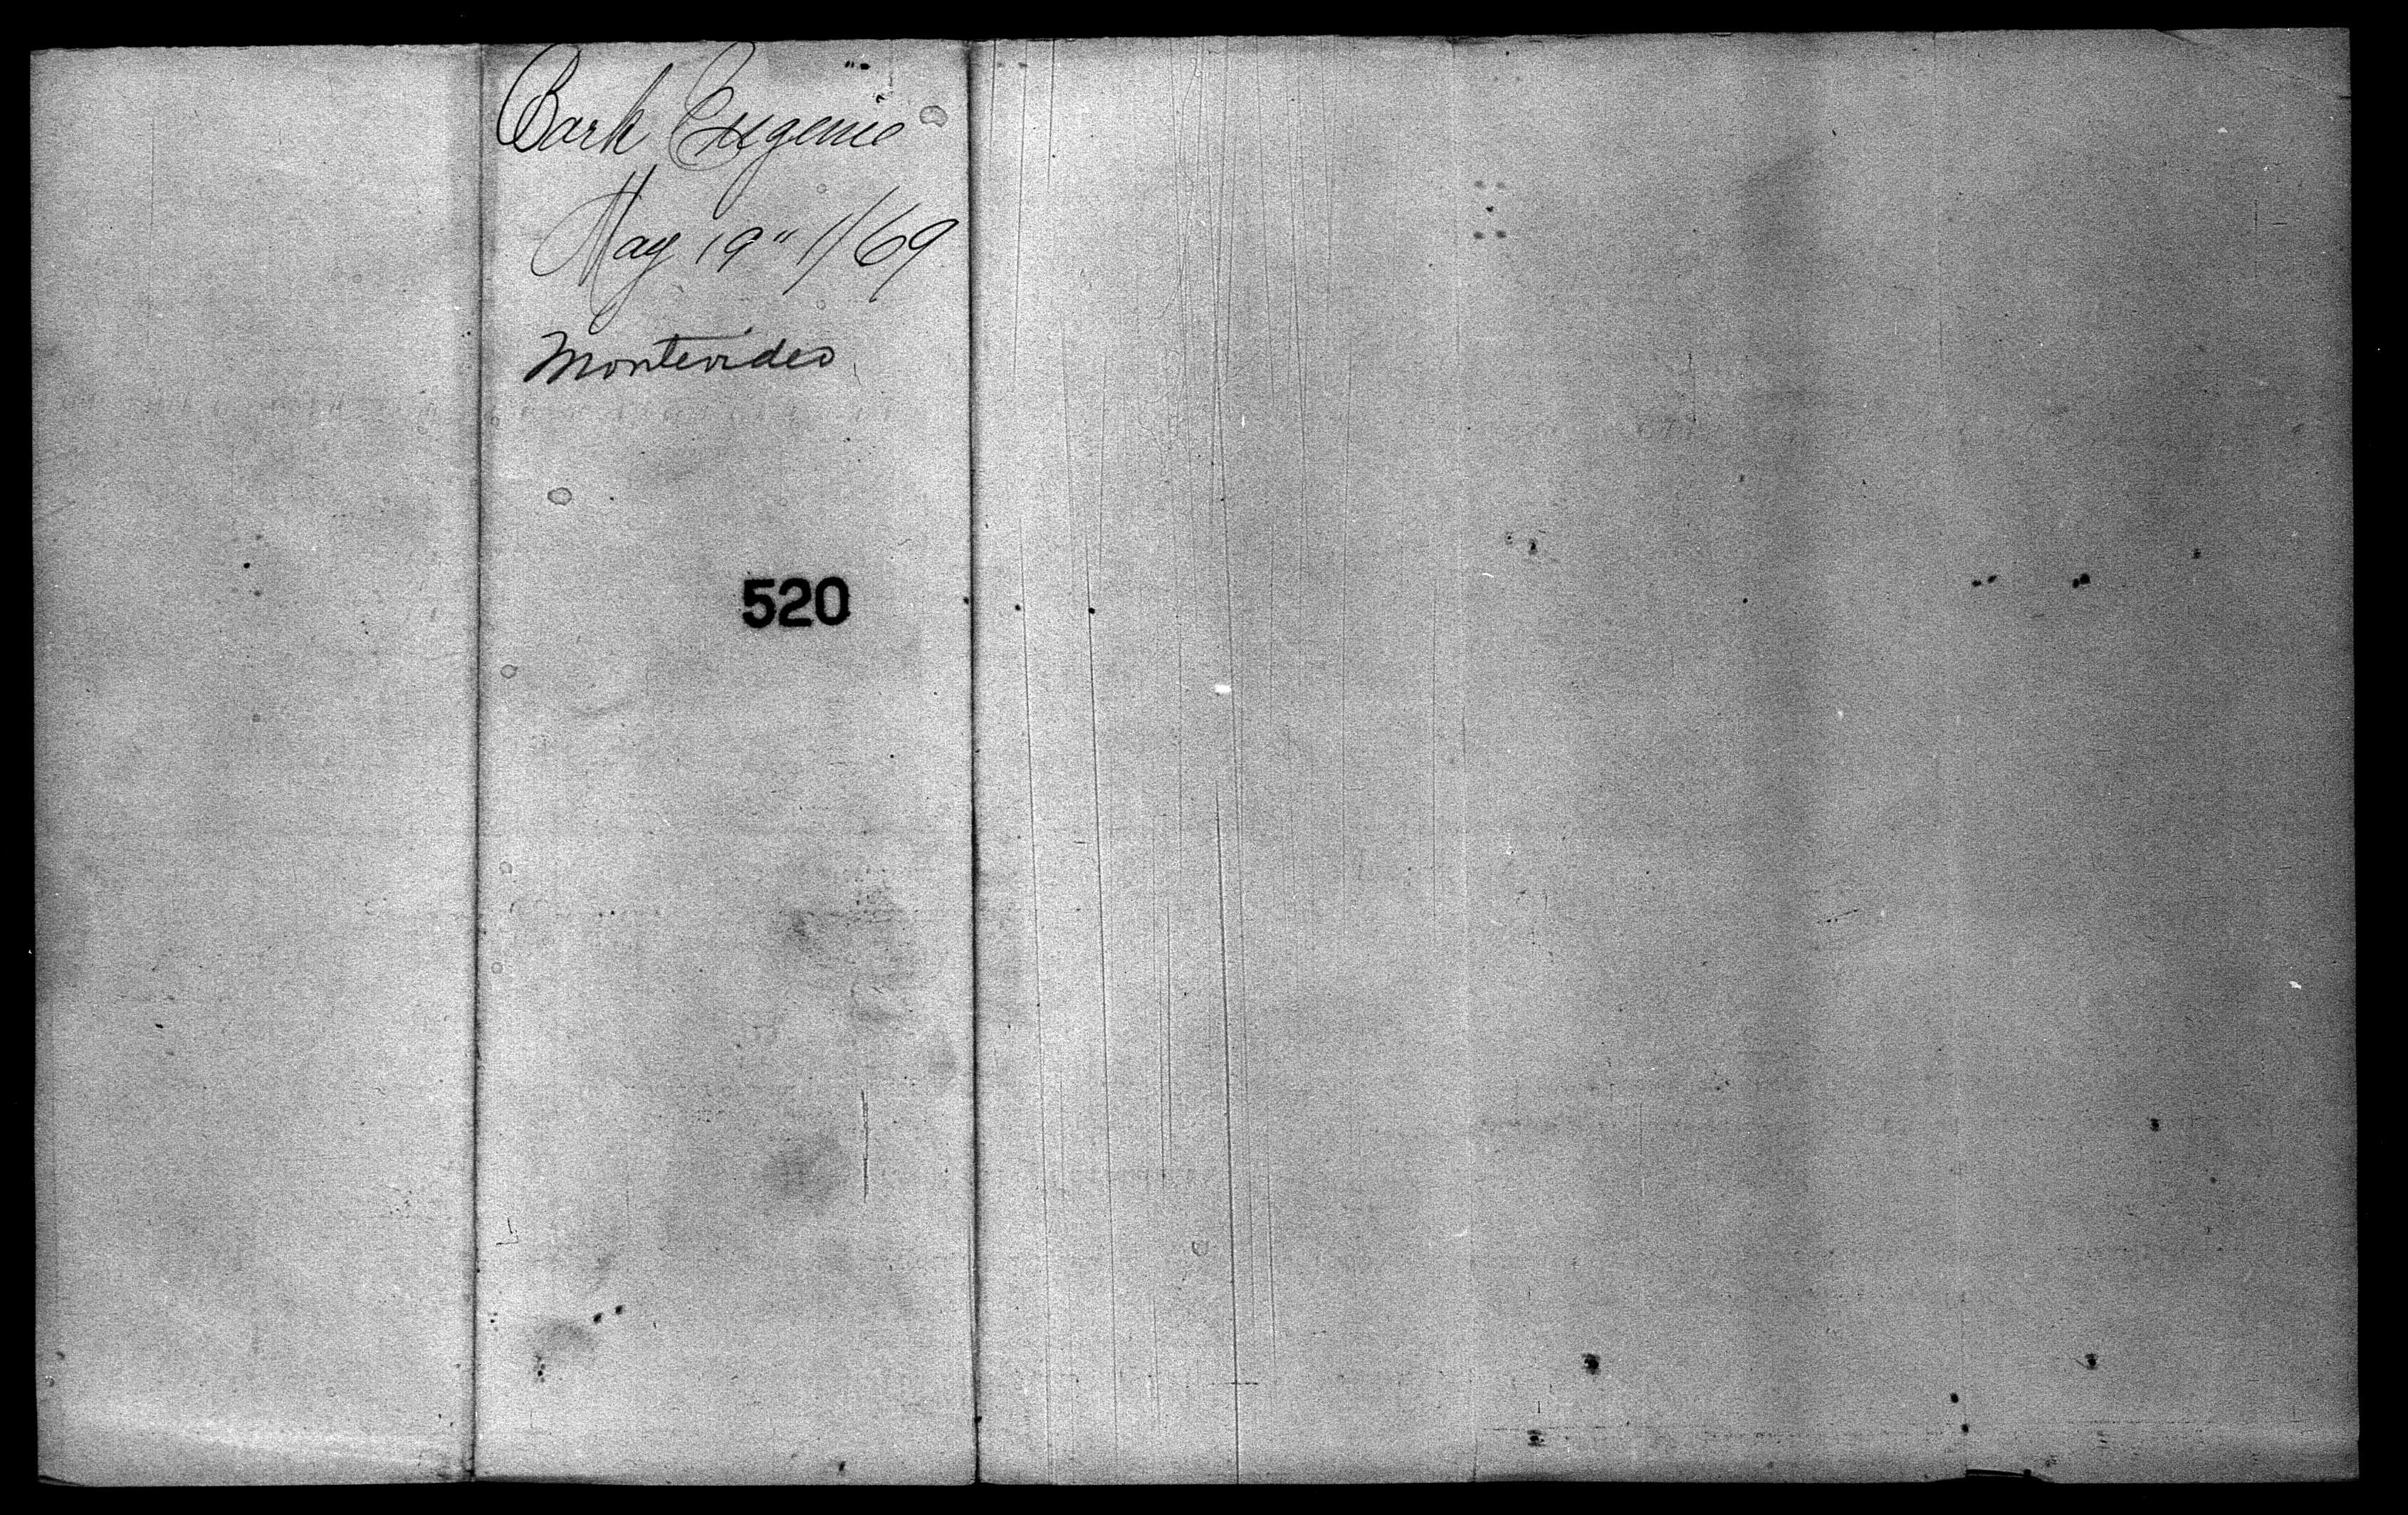 Bark Eugenie
May 19" 1/69
Montevideo
520